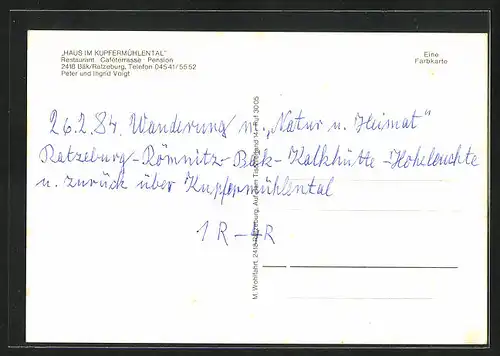 „HAUS IM KUPFERMÜHLENTAL"
Restaurant Caféterrasse Pension
2418 Bäk/Ratzeburg, Telefon 04541/5552
Peter und Ingrid Voigt
Eine
Farbkarte
26.2.84. Wanderung m. „Natur u. Heimat"
Ratzeburg-Römnitz-Bäk-Kalkhütte-Hoheleuchte
u. zurück über Kupfermühlental
1 R-4R
M. Wohlfahrt, 2418 Ratzeburg, Auf dem 14 - Ruf 3005